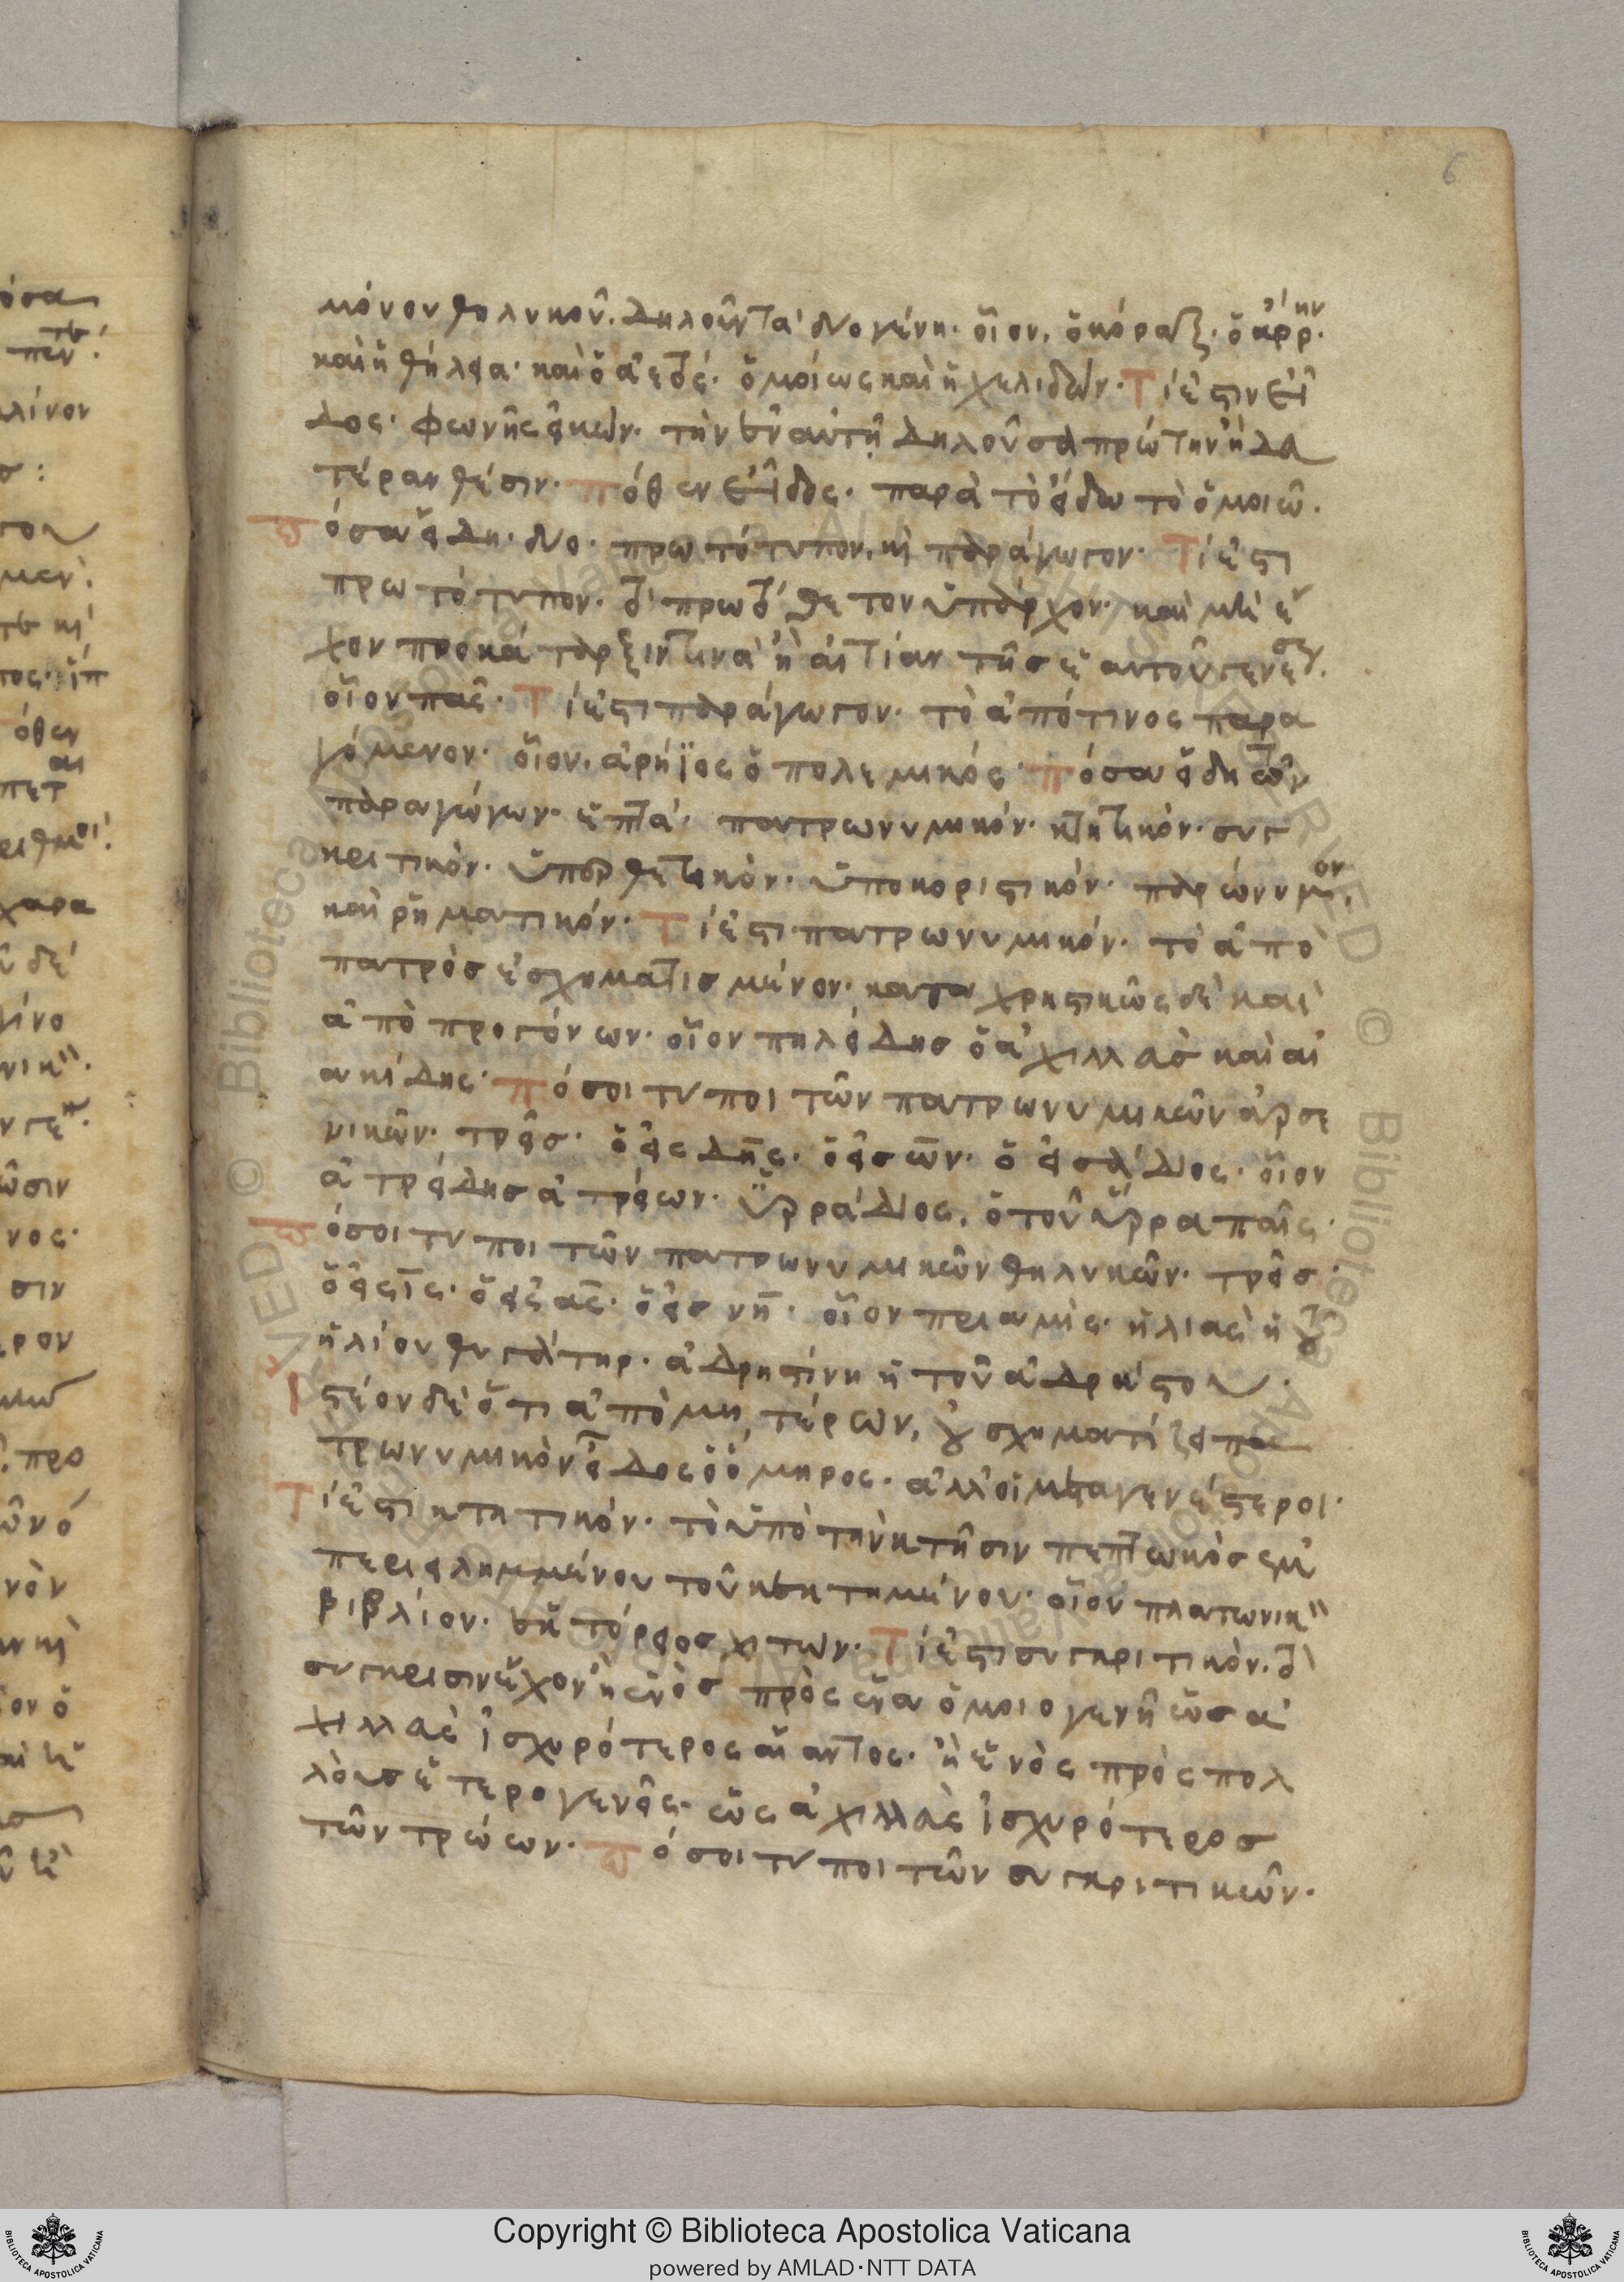 6
μόνον θηλυκοῦ. δηλοῦντα δύο γένη. οἷον, ὁ κόραξ. ὁ ἄρρην.
καὶ ἡ θήλεια. καὶ ὁ ἀετός. ὁμοίως καὶ ἡ χελιδών. Τί ἐστιν εἶ
δος. φωνῆς εἰκών. τὴν ἐν αὐτῇ δηλοῦσα πρώτην ἢ δευ
τέραν θέσιν. πόθεν εἶδος. παρὰ τὸ εἴδω τὸ ὁμοιῶ.
Πόσα εἴδη. δύο. πρωτότυπον, καὶ παράγωγον. Τί ἐστι
πρωτότυπον. τὸ πρωτόθετον ὑπάρχον. καὶ μὴ ἔ
χον προκατάρξιν τινὰ ἢ αἰτίαν τῆς ἐξ αὐτοῦ γενέσεως.
οἷον παῖς. Τί ἐστι παράγωγον. τὸ ἀπό τινος παρα
γόμενον. οἷον, ἀρήϊος ὁ πολεμικός. πόσα εἴδη τῶν
παραγώγων. ἑπτά. πατρωνυμικόν. κτητικόν. συγ
κριτικόν. ὑπερθετικόν. ὑποκοριστικόν. παρώνυμον.
καὶ ῥηματικόν. Τί ἐστι πατρωνυμικόν. τὸ ἀπὸ
πατρὸς ἐσχηματισμένον. καταχρηστικῶς δὲ καὶ
ἀπὸ προγόνων. οἷον πηλείδης ὁ ἀχιλλεὺς καὶ αἰ
ακίδης. πόσοι τύποι τῶν πατρωνυμικῶν ἀρσε
νικῶν. τρεῖς. ὁ εἰς δης. ὁ εἰς ων. ὁ εἰς άδιος. οἷον
ἀτρείδης ἀτρείων. ὑρράδιος, ὁ τοῦ ὕρρα παῖς.
Πόσοι τύποι τῶν πατρωνυμικῶν θηλυκῶν. τρεῖς.
ὁ εἰς ις. ὁ εἰς ας. ὁ εἰς νη. οἷον πριαμίς. ἡλιὰς ἡ τοῦ
ἡλίου θυγάτηρ. ἀδρηστίνη ἡ τοῦ ἀδρήστου.
Ἰστέον δὲ ὅτι ἀπὸ μητέρων, οὐ σχηματίζει πα
τρωνυμικὸν εἶδος ὁ ὅμηρος. ἀλλ' οἱ μεταγενέστεροι.
Τί ἐστι κτητικόν. τὸ ὑπὸ τὴν κτῆσιν πεπτωκὸς ἐμ
περιειλημμένου τοῦ κεκτημένου. οἷον πλατωνικὸν
βιβλίον. ἑκτόρειος χιτων. Τί ἐστι συγκριτικόν. τὸ
συγκρισιν ἔχον ἢ ἑνὸς πρὸς ἕνα ὁμοιογενῆ ὡς ἀ
χιλλεὺς ἰσχυρότερος αἴαντος. ἢ ἑνὸς πρὸς πολ
λοὺς ἑτερογενεῖς. ὡς ἀχιλλεὺς ἰσχυρότερος
τῶν τρώων. Πόσοι τύποι τῶν συγκριτικῶν.
Copyright © Biblioteca Apostolica Vaticana
powered by AMLAD·NTT DATA